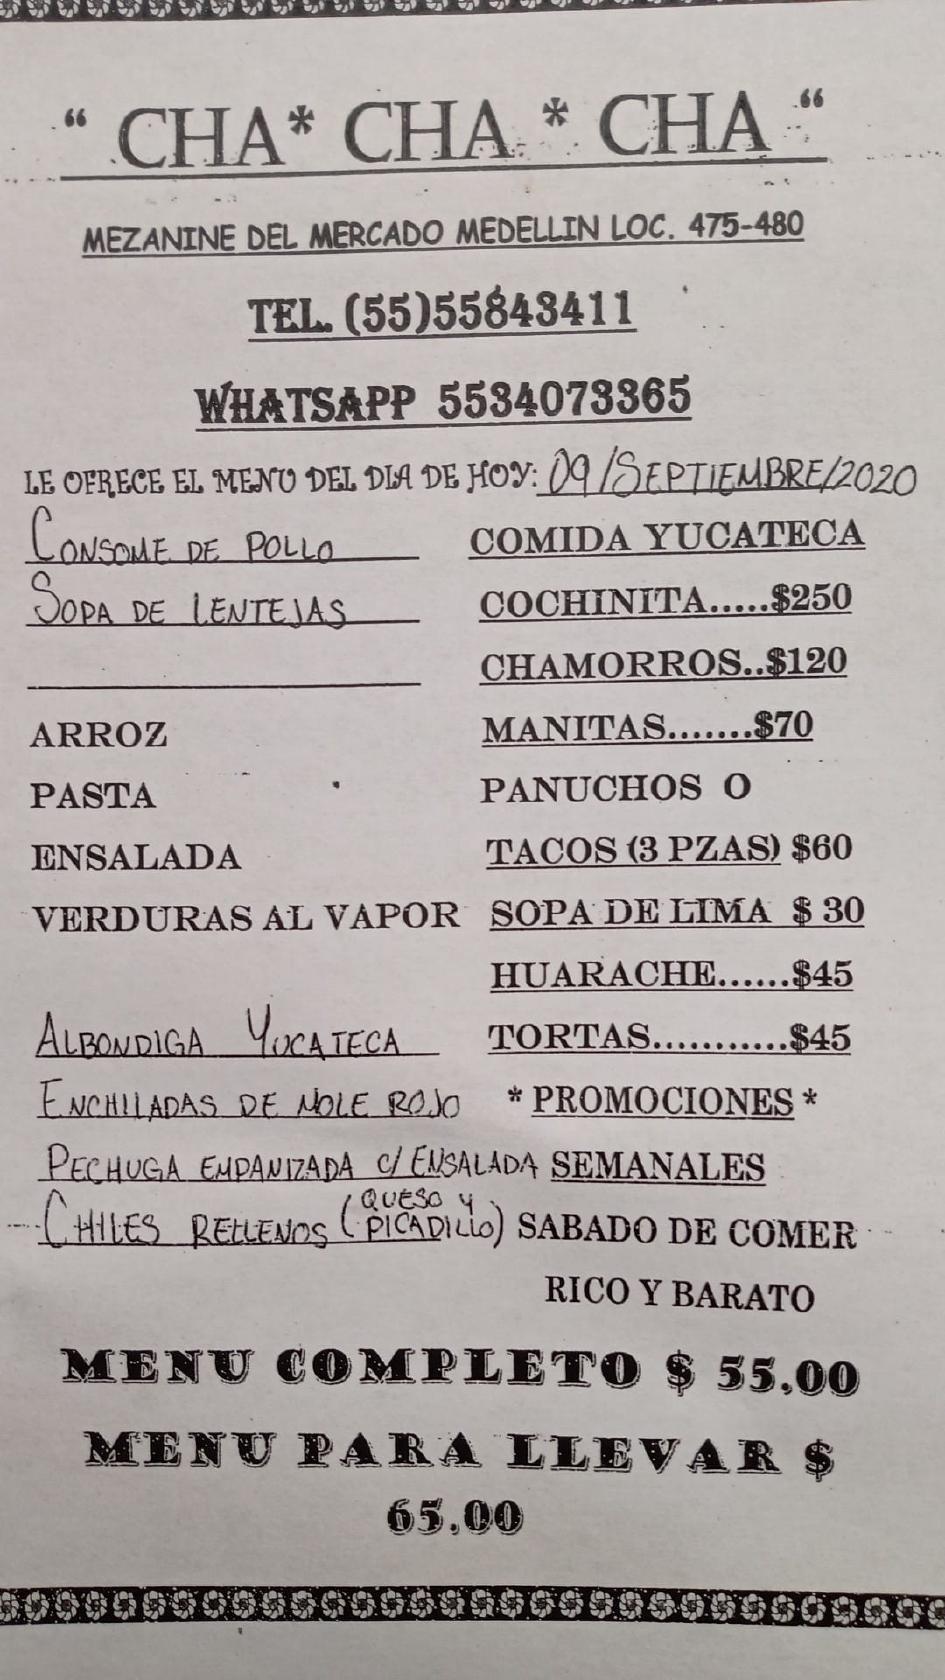 “ CHA* CHA * CHA “
MEZANINE DEL MERCADO MEDELLIN LOC. 475-480
TEL. (55)55843411
WHATSAPP 5534073365
LE OFRECE EL MENU DEL DIA DE HOY: 09/SEPTIEMBRE/2020
CONSOME DE POLLO
SOPA DE LENTEJAS
ARROZ
PASTA
ENSALADA
VERDURAS AL VAPOR
ALBONDIGA YUCATECA
ENCHILADAS DE MOLE ROJO
PECHUGA EMPANIZADA C/ ENSALADA
CHILES RELLENOS (QUESO Y PICADILLO)
COMIDA YUCATECA
COCHINITA.....$250
CHAMORROS..$120
MANITAS.......$70
PANUCHOS O
TACOS (3 PZAS) $60
SOPA DE LIMA $ 30
HUARACHE......$45
TORTAS...........$45
* PROMOCIONES *
SEMANALES
SABADO DE COMER
RICO Y BARATO
MENU COMPLETO $ 55.00
MENU PARA LLEVAR $
65.00